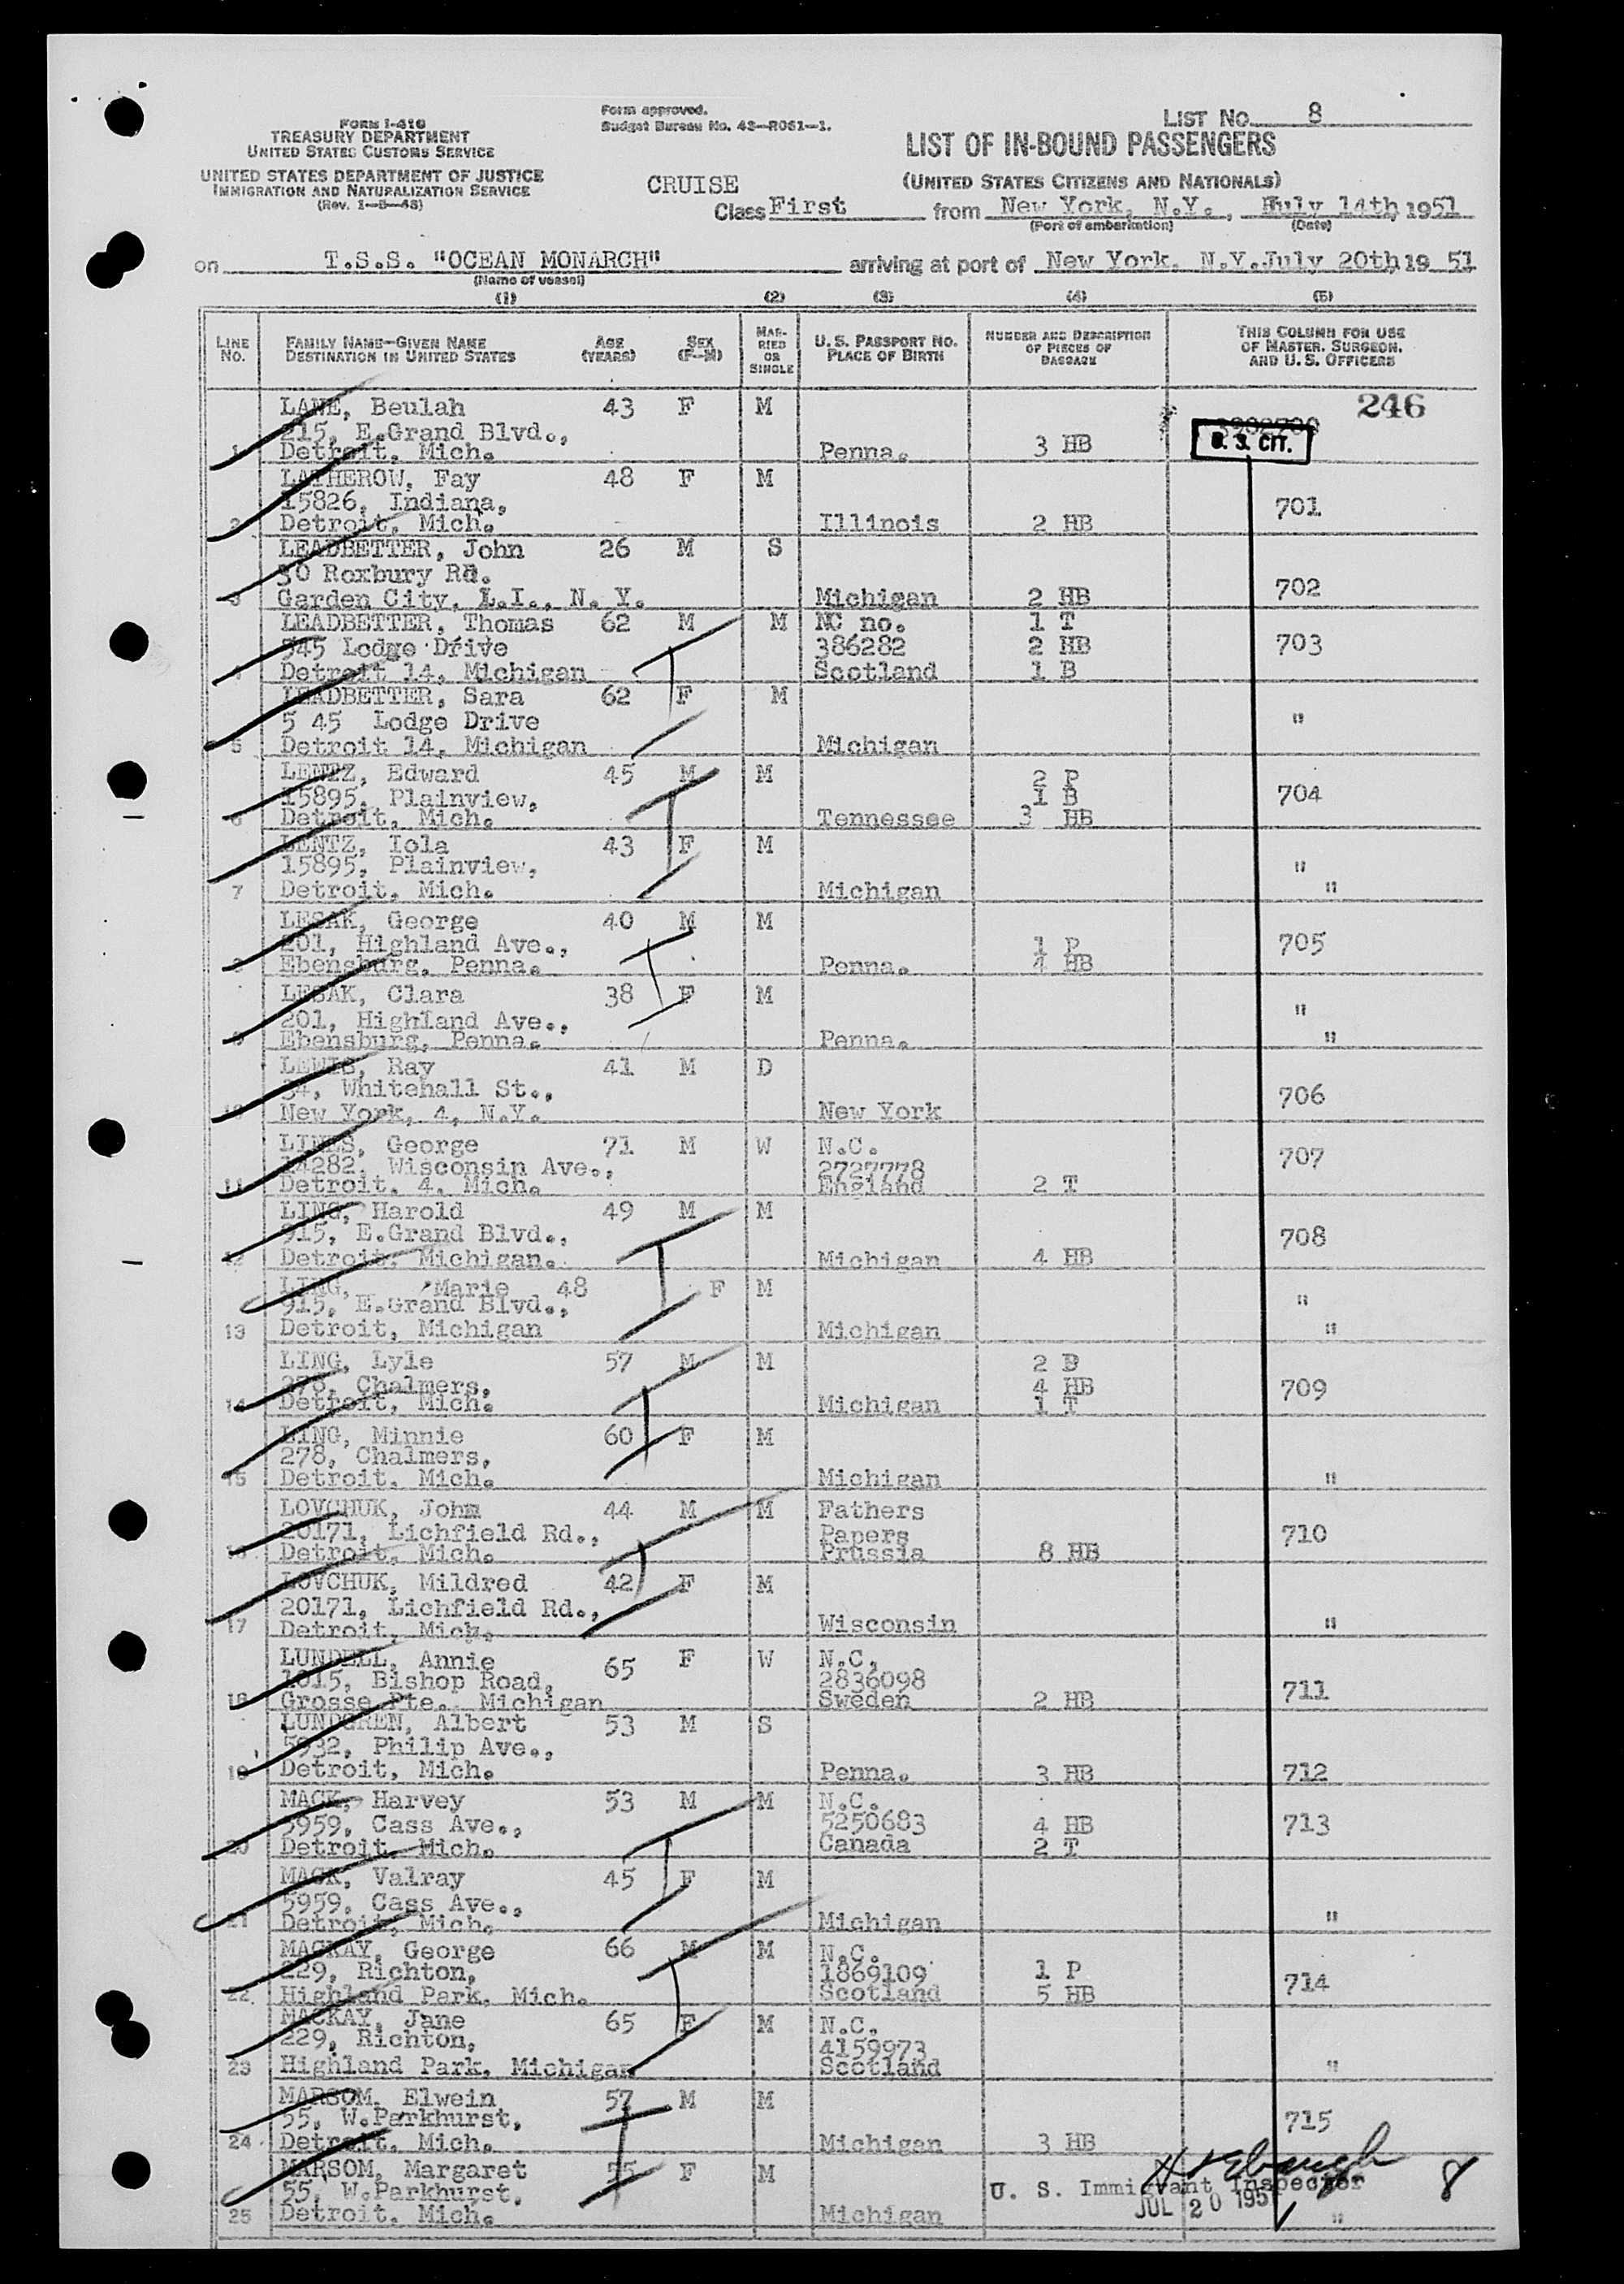 Form I-416
TREASURY DEPARTMENT
UNITED STATES CUSTOMS SERVICE
UNITED STATES DEPARTMENT OF JUSTICE
IMMIGRATION AND NATURALIZATION SERVICE
(Rev. 1-5-48)
Form approved.
Budget Bureau No. 43-R061-1.
LIST No. 8
LIST OF IN-BOUND PASSENGERS
(UNITED STATES CITIZENS AND NATIONALS)
CRUISE
Class First from New York, N.Y., July 14th, 1951
(Port of embarkation) (Date)
on T.S.S. "OCEAN MONARCH" arriving at port of New York, N.Y. July 20th, 1951
(Name of vessel)
(1) (2) (3) (4) (5)
LINE NO.
FAMILY NAME—GIVEN NAME
DESTINATION IN UNITED STATES
AGE (YEARS)
SEX (F—M)
MARRIED OR SINGLE
U. S. PASSPORT NO.
PLACE OF BIRTH
NUMBER AND DESCRIPTION OF PIECES OF BAGGAGE
THIS COLUMN FOR USE OF MASTER, SURGEON, AND U. S. OFFICERS
246
U. S. CIT.
LANE, Beulah 43 F M
215, E.Grand Blvd.,
1 Detroit, Mich. Penna. 3 HB
LATHEROW, Fay 48 F M
15826, Indiana, 701
2 Detroit, Mich. Illinois 2 HB
LEADBETTER, John 26 M S
30 Roxbury Rd. 702
3 Garden City, L.I., N. Y. Michigan 2 HB
LEADBETTER, Thomas 62 M M NC no. 1 T
545 Lodge Drive 386282 2 HB 703
4 Detroit 14, Michigan Scotland 1 B
LEADBETTER, Sara 62 F M
5 45 Lodge Drive "
5 Detroit 14, Michigan Michigan
LENTZ, Edward 45 M M 2 P
15895, Plainview, 1 B 704
6 Detroit, Mich. Tennessee 3 HB
LENTZ, Iola 43 F M
15895, Plainview, "
7 Detroit, Mich. Michigan "
LESAK, George 40 M M
201, Highland Ave., 1 P 705
8 Ebensburg, Penna. Penna. 4 HB
LESAK, Clara 38 F M
201, Highland Ave., "
9 Ebensburg, Penna. Penna. "
LEWIS, Ray 41 M D
34, Whitehall St., 706
10 New York, 4, N.Y. New York
LINES, George 71 M W N.C.
14282, Wisconsin Ave., 2727778 707
11 Detroit, 4, Mich. England 2 T
LING, Harold 49 M M
915, E.Grand Blvd., 708
12 Detroit, Michigan. Michigan 4 HB
LING, Marie 48 F M
915, E.Grand Blvd., "
13 Detroit, Michigan Michigan "
LING, Lyle 57 M M 2 B
278, Chalmers, 4 HB 709
14 Detroit, Mich. Michigan 1 T
LING, Minnie 60 F M
278, Chalmers,
15 Detroit, Mich. Michigan "
LOVCHUK, John 44 M M Fathers
20171, Lichfield Rd., Papers 710
16 Detroit, Mich. Prussia 8 HB
LOVCHUK, Mildred 42 F M
20171, Lichfield Rd.,
17 Detroit, Mich. Wisconsin "
LUNDELL, Annie 65 F W N.C.
1015, Bishop Road, 2836098
18 Grosse Pte., Michigan Sweden 2 HB 711
LUNDGREN, Albert 53 M S
5932, Philip Ave.,
19 Detroit, Mich. Penna. 3 HB 712
MACK, Harvey 53 M M N.C.
5959, Cass Ave., 5250683 4 HB 713
20 Detroit, Mich. Canada 2 T
MACK, Valray 45 F M
5959, Cass Ave.,
21 Detroit, Mich. Michigan "
MACKAY, George 66 M M N.C.
229, Richton, 1869109 1 P 714
22 Highland Park, Mich. Scotland 5 HB
MACKAY, Jane 65 F M N.C.
229, Richton, 4159973
23 Highland Park, Michigan Scotland "
MARSOM, Elwein 57 M M
55, W.Parkhurst, 715
24 Detroit, Mich. Michigan 3 HB
MARSOM, Margaret 55 F M
55, W.Parkhurst, U. S. Immigrant Inspector 8
JUL 20 195
25 Detroit, Mich. Michigan "